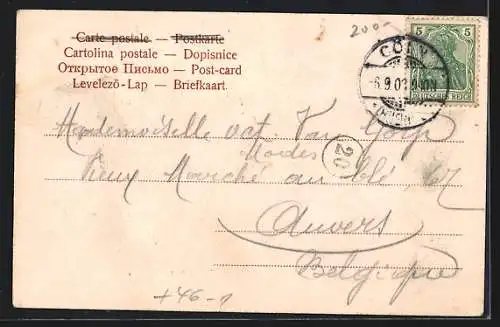 Carte postale — Postkarte
Cartolina postale — Dopisnice
Открытое Письмо — Post-card
Levelező-Lap — Briefkaart.
200-
5 5
DEUTSCHES REICH
CÖLN
6.9.03
Mademoiselle Oct. Van Gorp
Modes
20
Vieux Marché au blé, 67
Anvers
Belgique
+46-